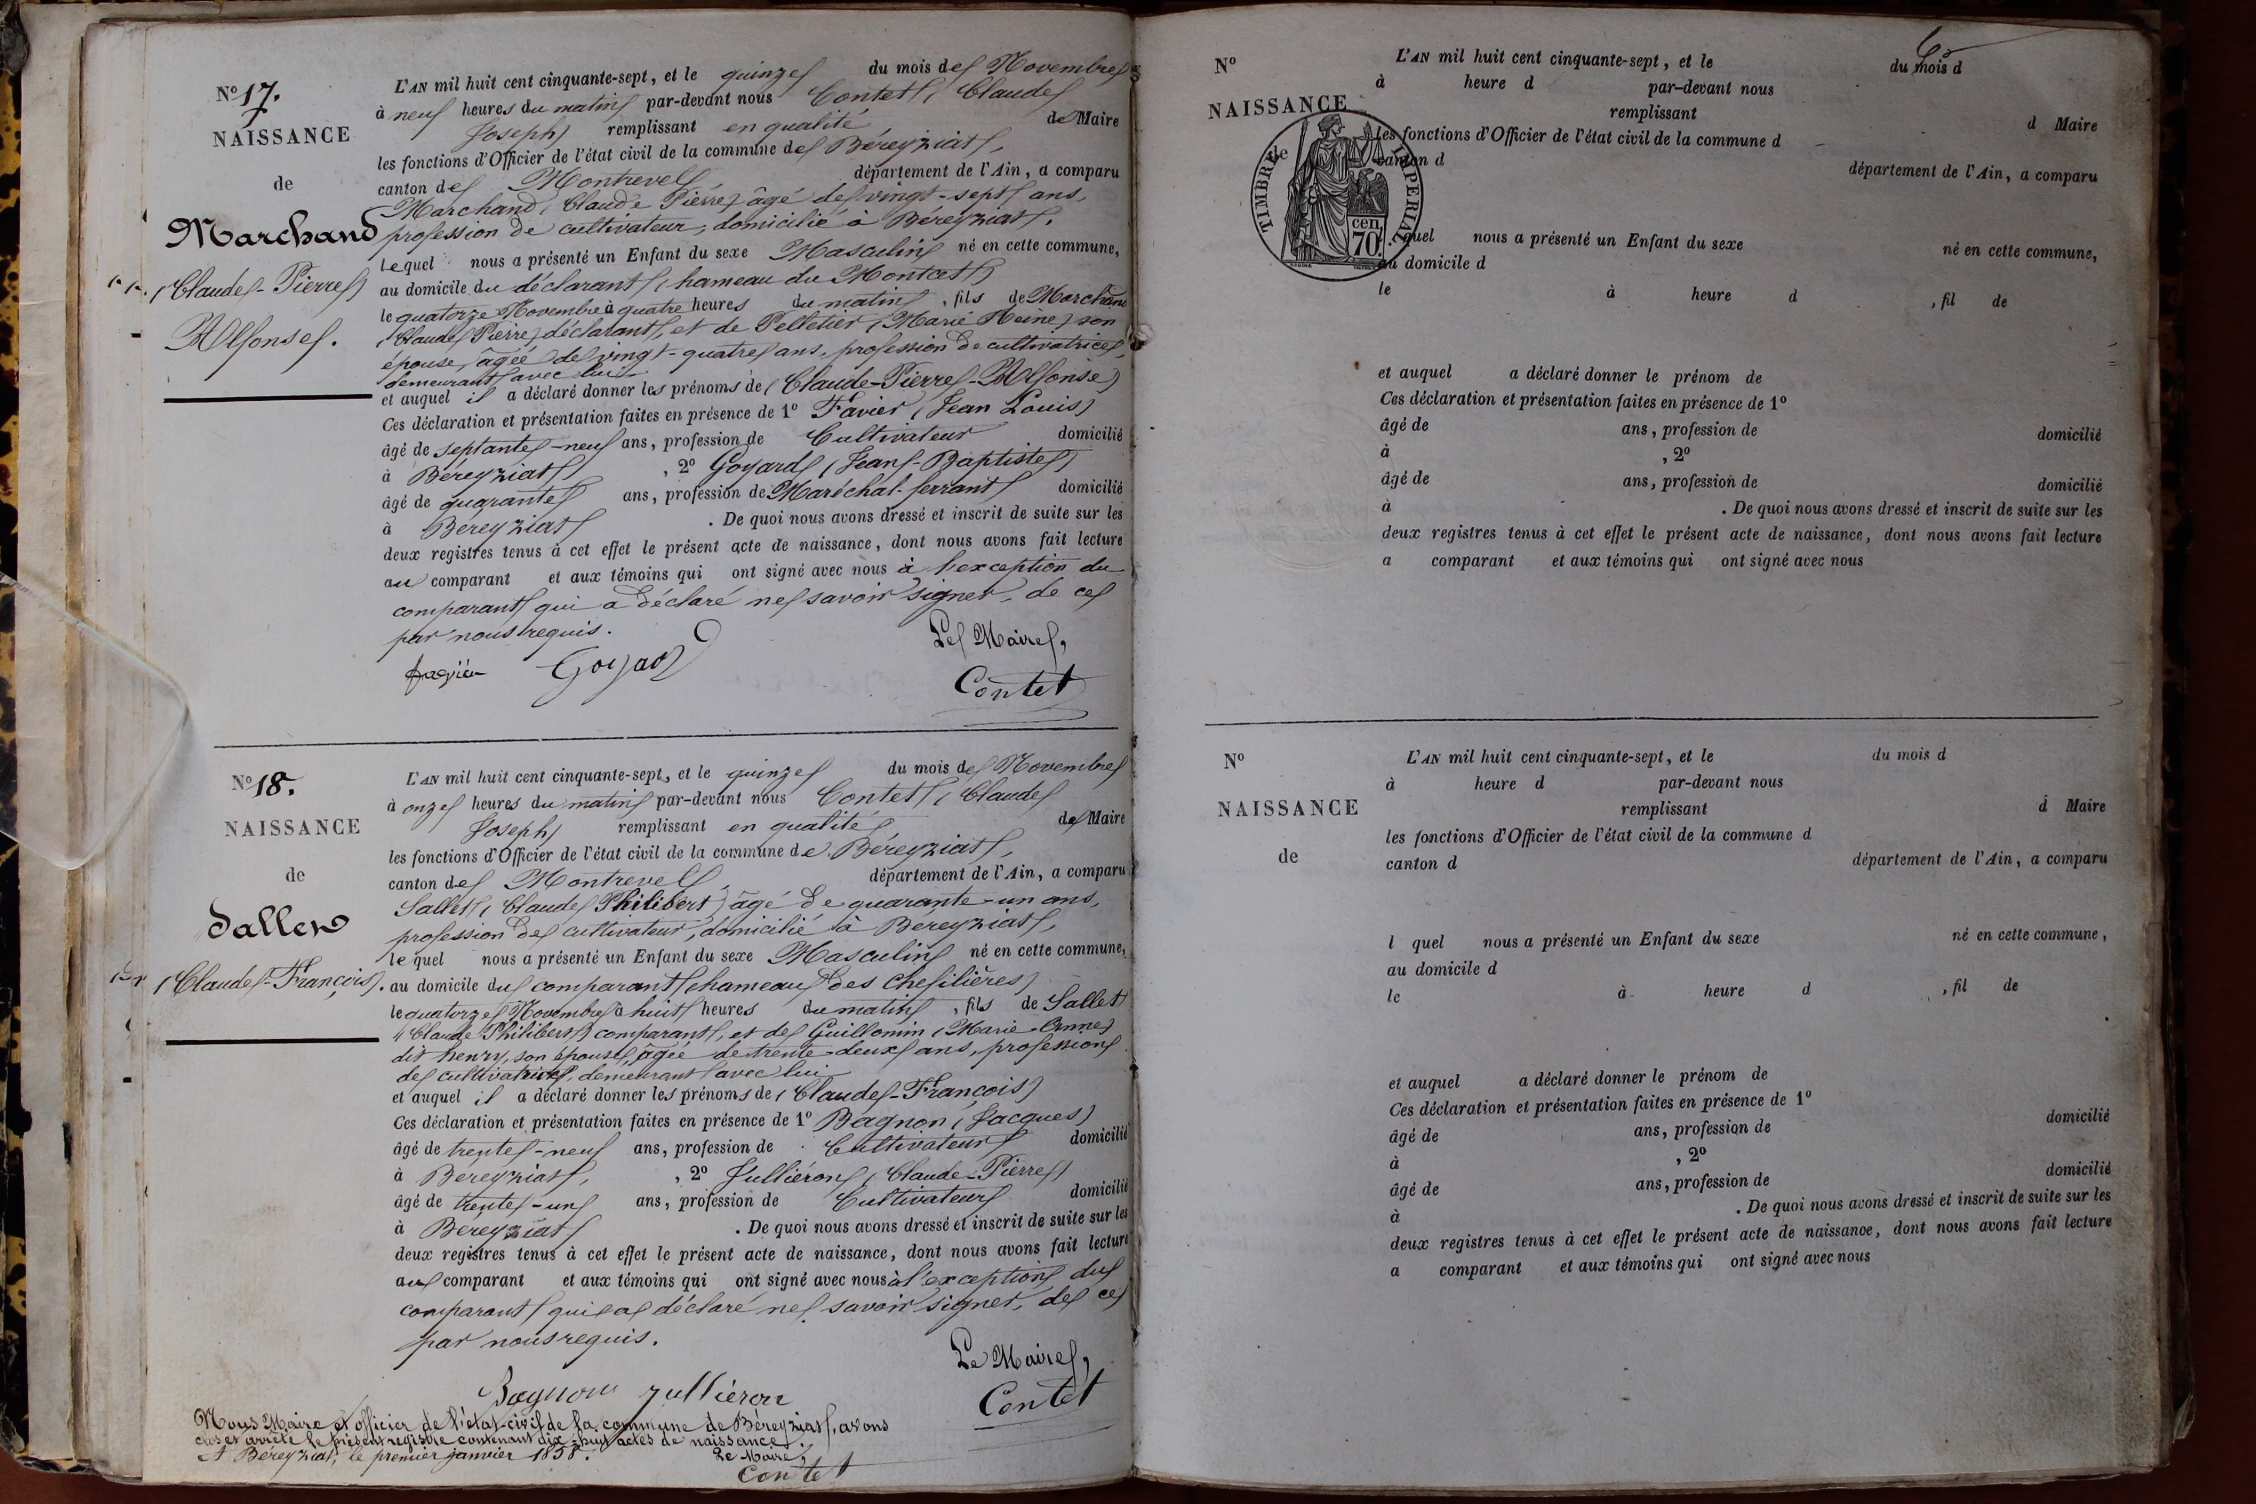 N° 17.
NAISSANCE
de
Marchand
(Claude-Pierre)
Alfonse.
L'AN mil huit cent cinquante-sept, et le quinze du mois de Novembre
à neuf heures du matin par-devant nous Contet (Claude
Joseph) remplissant en qualité de Maire
les fonctions d'Officier de l'état civil de la commune de Béreyziat,
canton de Montrevel département de l'Ain, a comparu
Marchand (Claude Pierre) âgé de vingt-sept ans,
profession de cultivateur, domicilié à Béreyziat.
lequel nous a présenté un Enfant du sexe Masculin né en cette commune,
au domicile du déclarant (hameau du Montcet)
le quatorze Novembre à quatre heures du matin, fils de Marchand
(Claude Pierre) déclarant, et de Pelletier (Marie Reine) son
épouse, âgée de vingt-quatre ans, profession de cultivatrice,
demeurant avec lui
et auquel il a déclaré donner les prénoms de (Claude-Pierre-Alfonse)
Ces déclaration et présentation faites en présence de 1° Favier (Jean Louis)
âgé de septante-neuf ans, profession de Cultivateur domicilié
à Béreyziat, 2° Goyard (Jean-Baptiste)
âgé de quarante ans, profession de Maréchal-ferrant domicilié
à Béreyziat. De quoi nous avons dressé et inscrit de suite sur les
deux registres tenus à cet effet le présent acte de naissance, dont nous avons fait lecture
au comparant et aux témoins qui ont signé avec nous à l'exception du
comparant qui a déclaré ne savoir signer, de ce
par nous requis.
Le Maire,
favier Goyard Contet
N° 18.
NAISSANCE
de
Sallet
(Claude-François).
L'AN mil huit cent cinquante-sept, et le quinze du mois de Novembre
à onze heures du matin par-devant nous Contet (Claude
Joseph) remplissant en qualité de Maire
les fonctions d'Officier de l'état civil de la commune de Béreyziat,
canton de Montrevel, département de l'Ain, a comparu
Sallet (Claude Philibert) âgé de quarante-un ans,
profession de cultivateur, domicilié à Béreyziat,
lequel nous a présenté un Enfant du sexe Masculin né en cette commune,
au domicile du comparant (hameau des Chefilières)
le quatorze Novembre à huit heures du matin, fils de Sallet
(Claude Philibert) comparant, et de Guillomin (Marie-Anne)
dit henry, son épouse, âgée de trente-deux ans, profession
de cultivatrice, demeurant avec lui
et auquel il a déclaré donner les prénoms de (Claude-François)
Ces déclaration et présentation faites en présence de 1° Bagnon (Jacques)
âgé de trente-neuf ans, profession de Cultivateur domicilié
à Béreyziat, 2° Julliéron (Claude-Pierre)
âgé de trente-un ans, profession de Cultivateur domicilié
à Béreyziat. De quoi nous avons dressé et inscrit de suite sur les
deux registres tenus à cet effet le présent acte de naissance, dont nous avons fait lecture
au comparant et aux témoins qui ont signé avec nous à l'exception du
comparant qui a déclaré ne savoir signer, de ce
par nous requis.
Le Maire,
Bagnon Julliéron Contet
Nous Maire et officier de l'état-civil de la commune de Béreyziat, avons
clos et arrêté le présent registre contenant dix-huit actes de naissance.
A Béreyziat, le premier janvier 1858.
Le Maire,
Contet
N°
NAISSANCE
de
TIMBRE IMPERIAL
70 cen.
L'AN mil huit cent cinquante-sept, et le du mois d
à heure d par-devant nous
remplissant d Maire
les fonctions d'Officier de l'état civil de la commune d
canton d département de l'Ain, a comparu
quel nous a présenté un Enfant du sexe né en cette commune,
au domicile d
le à heure d , fil de
et auquel a déclaré donner le prénom de
Ces déclaration et présentation faites en présence de 1°
âgé de ans, profession de domicilié
à , 2°
âgé de ans, profession de domicilié
à . De quoi nous avons dressé et inscrit de suite sur les
deux registres tenus à cet effet le présent acte de naissance, dont nous avons fait lecture
a comparant et aux témoins qui ont signé avec nous
N°
NAISSANCE
de
L'AN mil huit cent cinquante-sept, et le du mois d
à heure d par-devant nous
remplissant d Maire
les fonctions d'Officier de l'état civil de la commune d
canton d département de l'Ain, a comparu
l quel nous a présenté un Enfant du sexe né en cette commune,
au domicile d
le à heure d , fil de
et auquel a déclaré donner le prénom de
Ces déclaration et présentation faites en présence de 1°
âgé de ans, profession de domicilié
à , 2°
âgé de ans, profession de domicilié
à . De quoi nous avons dressé et inscrit de suite sur les
deux registres tenus à cet effet le présent acte de naissance, dont nous avons fait lecture
a comparant et aux témoins qui ont signé avec nous